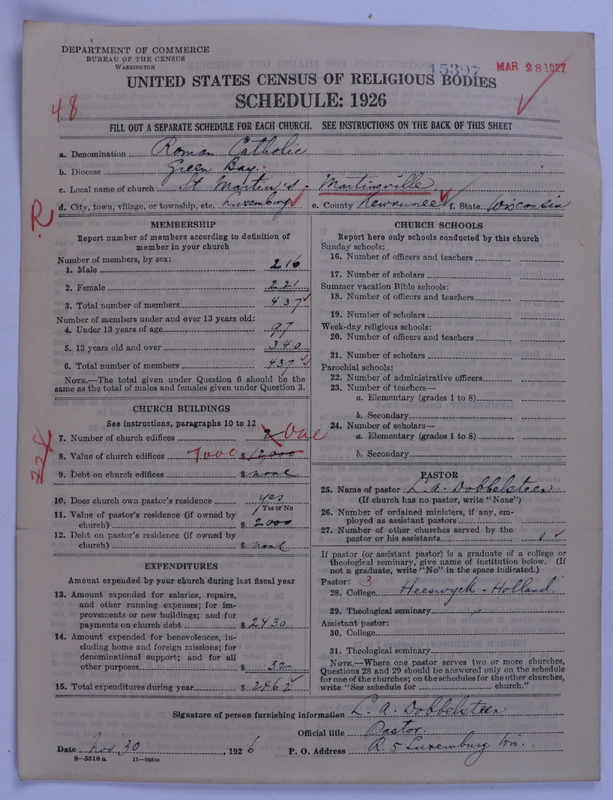 DEPARTMENT OF COMMERCE
BUREAU OF THE CENSUS
WASHINGTON
15397 MAR 28 1927
UNITED STATES CENSUS OF RELIGIOUS BODIES
SCHEDULE: 1926
48
FILL OUT A SEPARATE SCHEDULE FOR EACH CHURCH. SEE INSTRUCTIONS ON THE BACK OF THIS SHEET
a. Denomination Roman Catholic
b. Diocese Green Bay
c. Local name of church St Martin's - Martinsville
d. City, town, village, or township, etc. Luxemburg e. County Kewaunee f. State Wisconsin
R
MEMBERSHIP
Report number of members according to definition of
member in your church
Number of members, by sex:
1. Male 216
2. Female 221
3. Total number of members 437
Number of members under and over 13 years old:
4. Under 13 years of age 97
5. 13 years old and over 340
6. Total number of members 437
NOTE.—The total given under Question 6 should be the
same as the total of males and females given under Question 3.
CHURCH BUILDINGS
See instructions, paragraphs 10 to 12
7. Number of church edifices 2 One
8. Value of church edifices 7000 $ 12000
9. Debt on church edifices $ none
10. Does church own pastor's residence yes
Yes or No
11. Value of pastor's residence (if owned by
church) $ 2000
12. Debt on pastor's residence (if owned by
church) $ none
EXPENDITURES
Amount expended by your church during last fiscal year
13. Amount expended for salaries, repairs,
and other running expenses; for im-
provements or new buildings; and for
payments on church debt $ 2430
14. Amount expended for benevolences, in-
cluding home and foreign missions; for
denominational support; and for all
other purposes $ 32
15. Total expenditures during year $ 2462
CHURCH SCHOOLS
Report here only schools conducted by this church
Sunday schools:
16. Number of officers and teachers
17. Number of scholars
Summer vacation Bible schools:
18. Number of officers and teachers
19. Number of scholars
Week-day religious schools:
20. Number of officers and teachers
21. Number of scholars
Parochial schools:
22. Number of administrative officers
23. Number of teachers—
a. Elementary (grades 1 to 8)
b. Secondary
24. Number of scholars—
a. Elementary (grades 1 to 8)
b. Secondary
PASTOR
25. Name of pastor L. A. Dobbelsteen
(If church has no pastor, write "None")
26. Number of ordained ministers, if any, em-
ployed as assistant pastors
27. Number of other churches served by the
pastor or his assistants 1
If pastor (or assistant pastor) is a graduate of a college or
theological seminary, give name of institution below. (If
not a graduate, write "No" in the space indicated.)
Pastor: 3
28. College Heeswyck - Holland
29. Theological seminary
Assistant pastor:
30. College
31. Theological seminary
NOTE.—Where one pastor serves two or more churches,
Questions 28 and 29 should be answered only on the schedule
for one of the churches; on the schedules for the other churches,
write "See schedule for church."
Signature of person furnishing information L. A. Dobbelsteen
Official title Pastor
Date Nov. 30, 1926 P. O. Address R. 5 Luxemburg Wis.
8—5518a